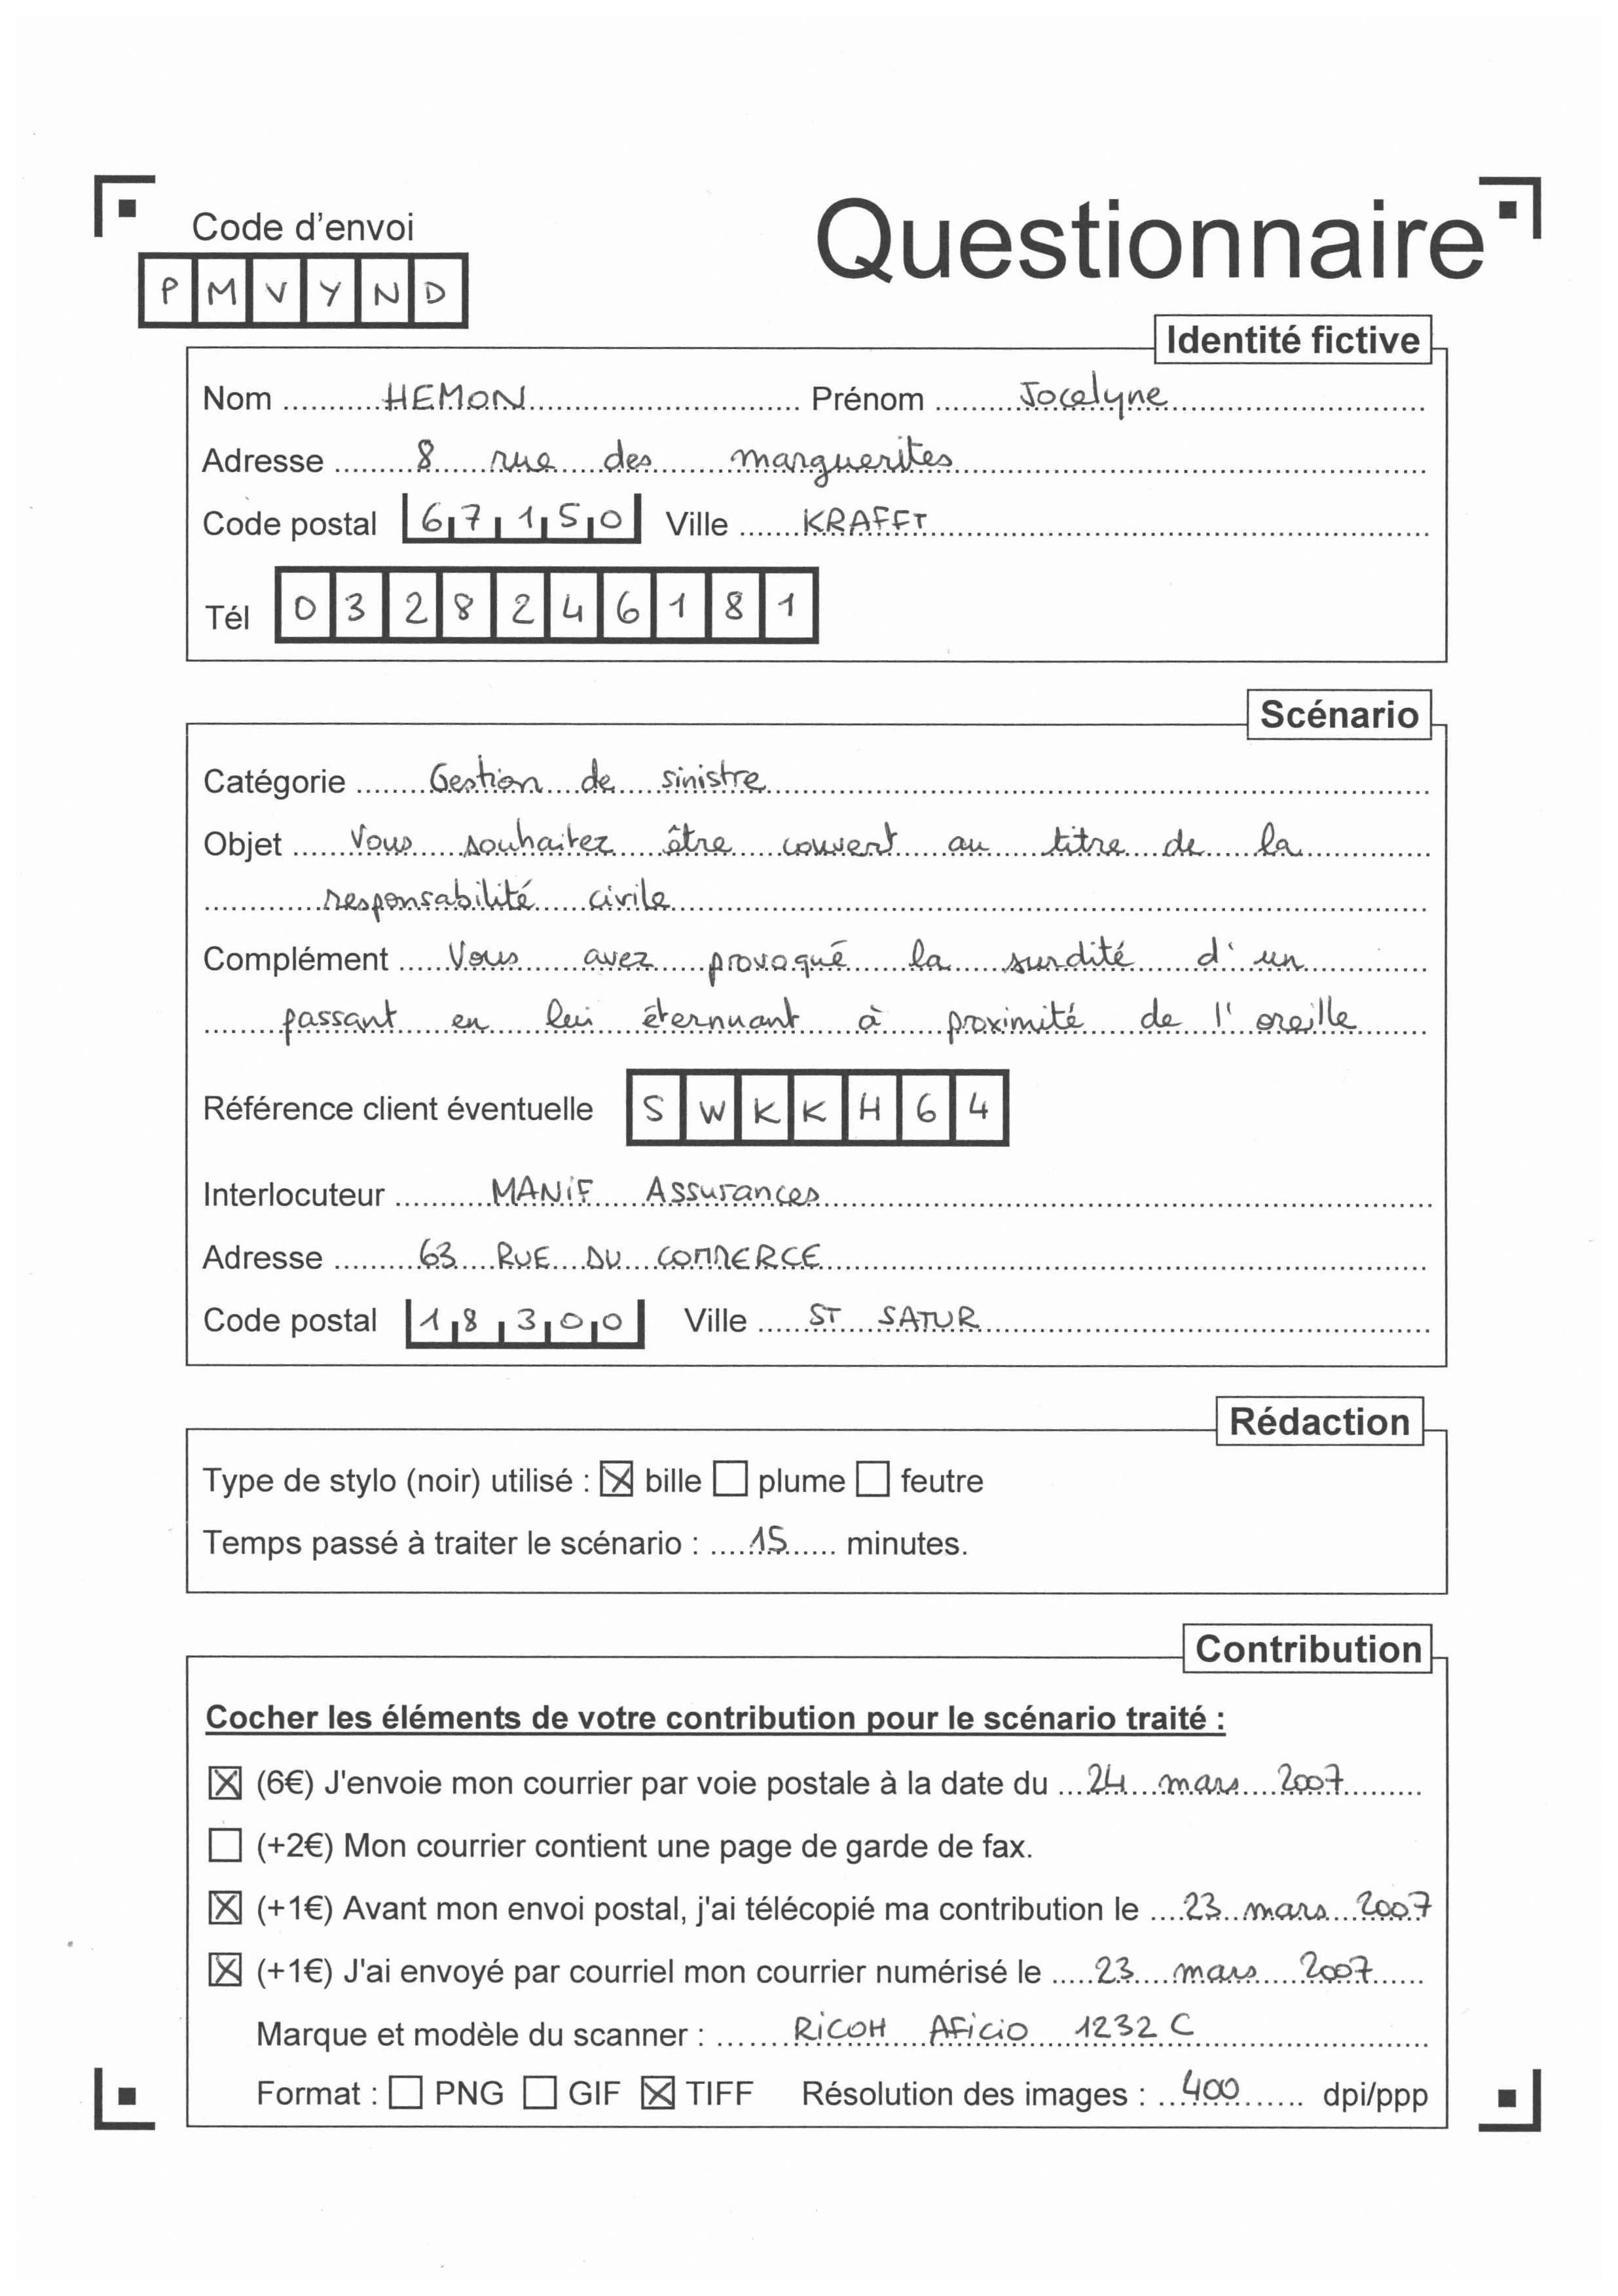 Code d'envoi
Questionnaire
P M V Y N D
Identité fictive
Nom ........... HEMON ........... Prénom ........... Jocelyne ...........
Adresse ......... 8 rue des marguerites .........
Code postal 67150 Ville ....... KRAFFT .......
Tél 0328246181
Scénario
Catégorie ........ Gestion de sinistre ........
Objet ...... Vous souhaitez être couvert au titre de la ......
............ responsabilité civile ............
Complément ..... Vous avez provoqué la surdité d'un .....
........ passant en lui éternuant à proximité de l'oreille ........
Référence client éventuelle SWKKH64
Interlocuteur .......... MANIF Assurances ..........
Adresse ......... 63 RUE DU COMMERCE .........
Code postal 18300 Ville ...... ST SATUR ......
Rédaction
Type de stylo (noir) utilisé : ☒ bille ☐ plume ☐ feutre
Temps passé à traiter le scénario : .... 15 ...... minutes.
Contribution
Cocher les éléments de votre contribution pour le scénario traité :
☒ (6€) J'envoie mon courrier par voie postale à la date du ... 24 mars 2007 ...
☐ (+2€) Mon courrier contient une page de garde de fax.
☒ (+1€) Avant mon envoi postal, j'ai télécopié ma contribution le .... 23 mars 2007
☒ (+1€) J'ai envoyé par courriel mon courrier numérisé le ..... 23 mars 2007 .....
Marque et modèle du scanner : ....... RICOH Aficio 1232 C .......
Format : ☐ PNG ☐ GIF ☒ TIFF Résolution des images : .. 400 ........ dpi/ppp